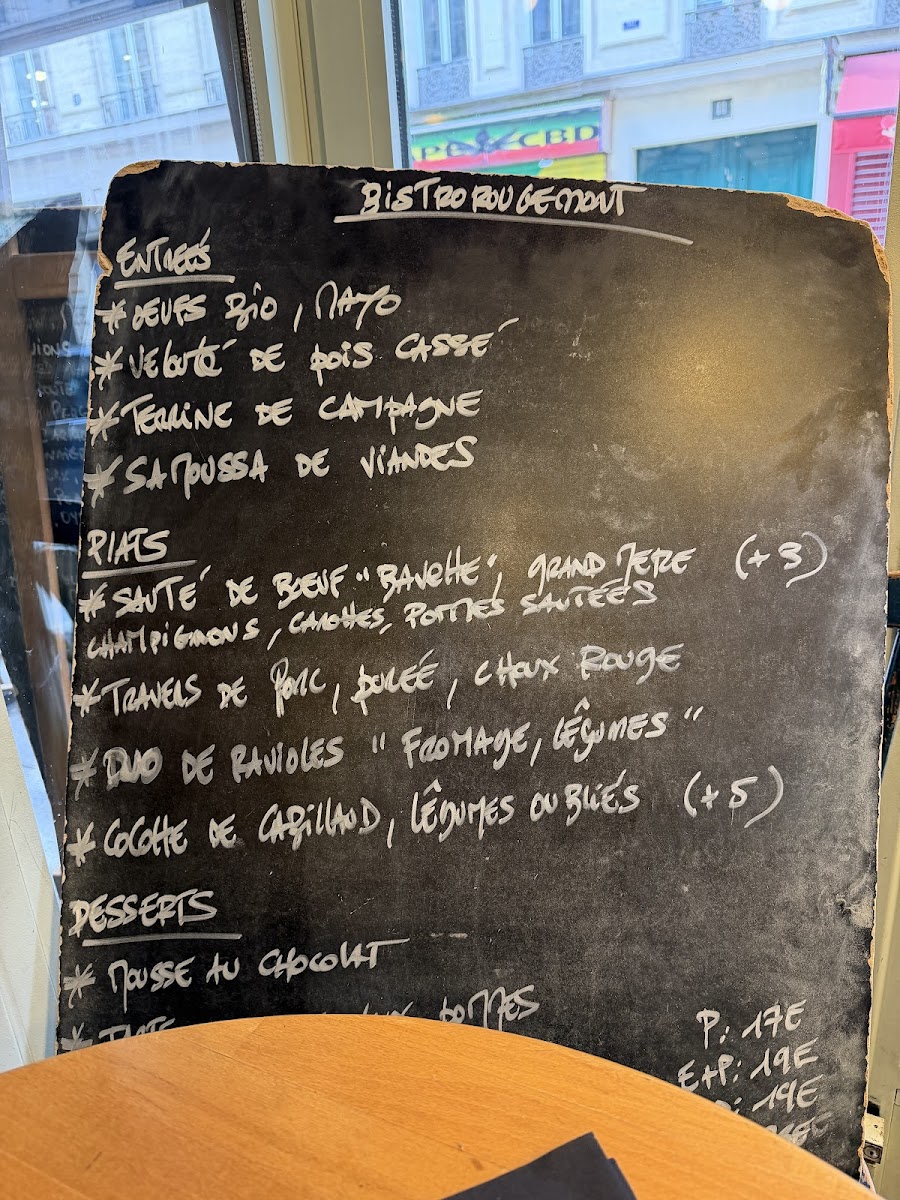 CBD
BISTROROUGEMONT
ENTREÉS
* OEUFS BIO, MAYO
* VELOUTÉ DE POIS CASSÉ
* TERRINE DE CAMPAGNE
* SAMOUSSA DE VIANDES
PLATS
* SAUTÉ DE BŒUF "BAVETTE", GRAND MERE (+3)
CHAMPIGNONS, CAROTTES, POMMES SAUTÉES
* TRAVERS DE PORC, PURÉE, CHOUX ROUGE
* DUO DE RAVIOLES "FROMAGE, LÉGUMES"
* COCOTTE DE CABILLAUD, LÊGUMES OUBLIÉS (+5)
DESSERTS
* MOUSSE AU CHOCOLAT
* POMMES
P: 17E
E+P: 19E
: 19E